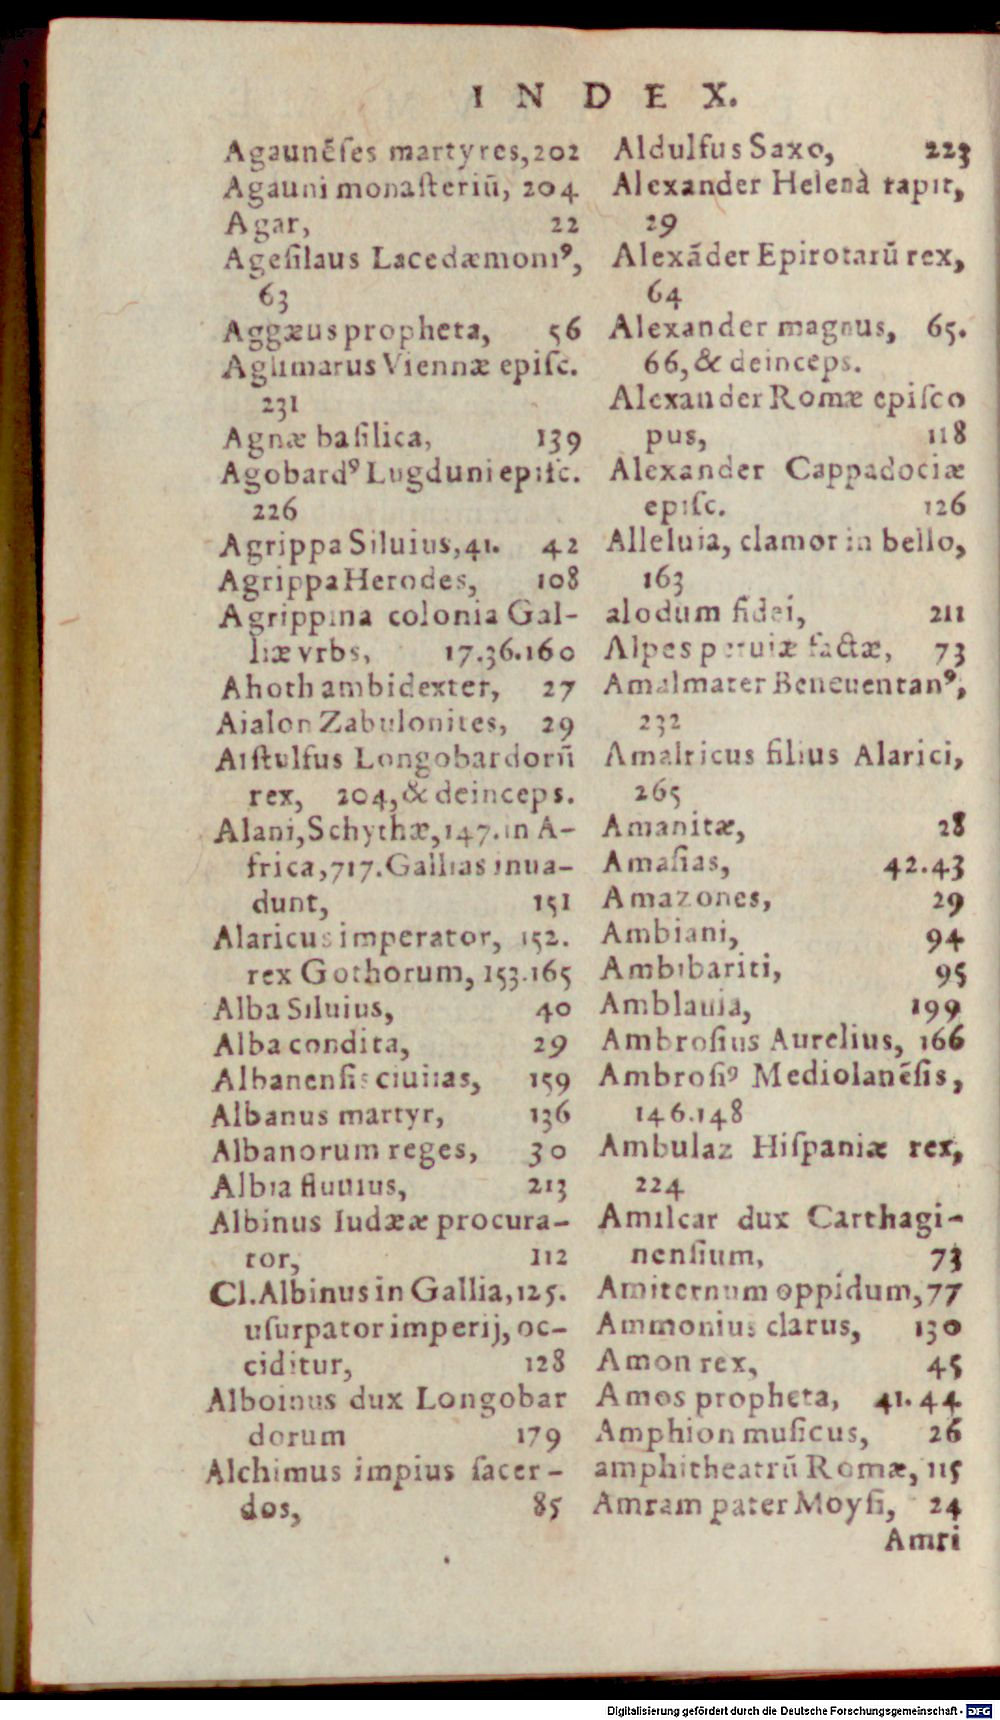 INDEX.
Agaunẽſes martyres, 202
Agauni monaſteriũ, 204
Agar, 22
Ageſilaus Lacedæmoniꝰ,
63
Aggæus propheta, 56
Aglimarus Viennæ epiſc.
231
Agnæ baſilica, 139
Agobardꝰ Lugduni epiſc.
226
Agrippa Siluius, 41. 42
Agrippa Herodes, 108
Agrippina colonia Gal-
liæ vrbs, 17.36.160
Ahoth ambidexter, 27
Aialon Zabulonites, 29
Aiſtulfus Longobardorũ
rex, 204, & deinceps.
Alani, Schythæ, 147. in A-
frica, 717. Gallias inua-
dunt, 151
Alaricus imperator, 152.
rex Gothorum, 153.165
Alba Siluius, 40
Alba condita, 29
Albanenſis ciuitas, 159
Albanus martyr, 136
Albanorum reges, 30
Albia fluuius, 213
Albinus Iudææ procura-
tor, 112
Cl. Albinus in Gallia, 125.
uſurpator imperij, oc-
ciditur, 128
Alboinus dux Longobar
dorum 179
Alchimus impius ſacer-
dos, 85
Aldulfus Saxo, 223
Alexander Helenã rapit,
29
Alexãder Epirotarũ rex,
64
Alexander magnus, 65.
66, & deinceps.
Alexander Romæ epiſco
pus, 118
Alexander Cappadociæ
epiſc. 126
Alleluia, clamor in bello,
163
alodum fidei, 211
Alpes peruiæ factæ, 73
Amalmater Beneuentanꝰ,
232
Amalricus filius Alarici,
265
Amanitæ, 28
Amaſias, 42.43
Amazones, 29
Ambiani, 94
Ambibariti, 95
Amblauia, 199
Ambroſius Aurelius, 166
Ambroſiꝰ Mediolanẽſis,
146.148
Ambulaz Hiſpaniæ rex,
224
Amilcar dux Carthagi-
nenſium, 73
Amiternum oppidum, 77
Ammonius clarus, 130
Amon rex, 45
Amos propheta, 41.44
Amphion muſicus, 26
amphitheatrũ Romæ, 115
Amram pater Moyſi, 24
Amri
Digitalisierung gefördert durch die Deutsche Forschungsgemeinschaft - DFG